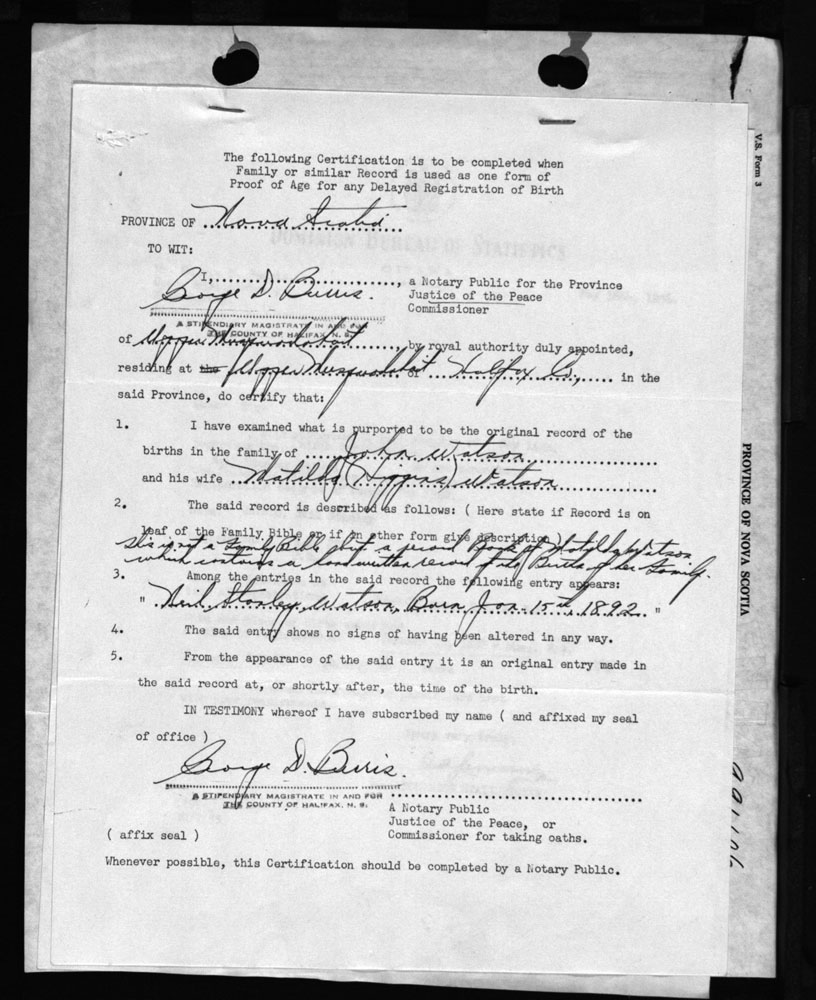 The following Certification is to be completed when
Family or similar Record is used as one form of
Proof of Age for any Delayed Registration of Birth
PROVINCE OF ...Nova Scotia...
TO WIT:
I,.........................., a Notary Public for the Province
George D. Burris. Justice of the Peace
Commissioner
A STIPENDIARY MAGISTRATE IN AND FOR
THE COUNTY OF HALIFAX, N. S.
of Upper Musquodoboit ......, by royal authority duly appointed,
residing at the Upper Musquodoboit of ... Halifax Co., ..... in the
said Province, do certify that:
1. I have examined what is purported to be the original record of the
births in the family of .... John Watson ..............
and his wife ..Matilda (Higgins) Watson..............
2. The said record is described as follows: ( Here state if Record is on
leaf of the Family Bible or if in other form give description )
This is not a Family Bible but a record Book of Matilda Watson
which contains a handwritten record of the Births of her Family.
3. Among the entries in the said record the following entry appears:
" .Neil Stanley Watson, Born Jan. 15th, 1892. "
4. The said entry shows no signs of having been altered in any way.
5. From the appearance of the said entry it is an original entry made in
the said record at, or shortly after, the time of the birth.
IN TESTIMONY whereof I have subscribed my name ( and affixed my seal
of office )
George D. Burris.
A STIPENDIARY MAGISTRATE IN AND FOR
THE COUNTY OF HALIFAX, N. S.
A Notary Public
Justice of the Peace, or
( affix seal ) Commissioner for taking oaths.
Whenever possible, this Certification should be completed by a Notary Public.
V.S. Form 3
PROVINCE OF NOVA SCOTIA
DOMINION BUREAU OF STATISTICS